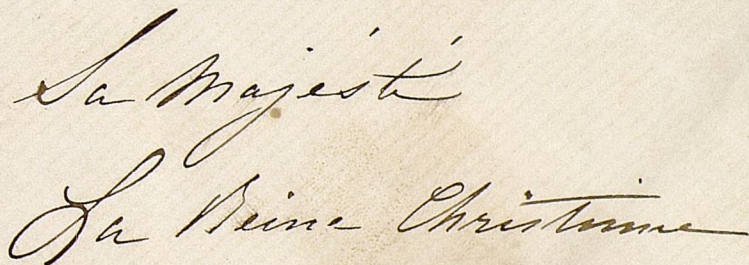 Sa Majésté
La Reine Christine